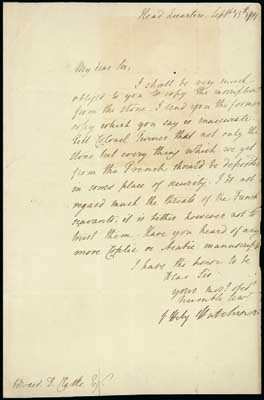 Head quarters, Septr 13th 1801
My dear Sir,
I shall be very much
obliged to you to copy the inscription
from the stone. I send you the former
copy which you say is inaccurate.
Tell Colonel Turner that not only the
stone but every thing which we get
from the French should be deposited
in some place of security. I do not
regard much the threats of the French
scavants, it is better however not to
trust them. Have you heard of any
more Coptic or Arabic manuscripts
I have the honor to be
Dear Sir
yours most obedt
humble Servt
J Hely Hutchinson
Edward D. Clarke Esqr